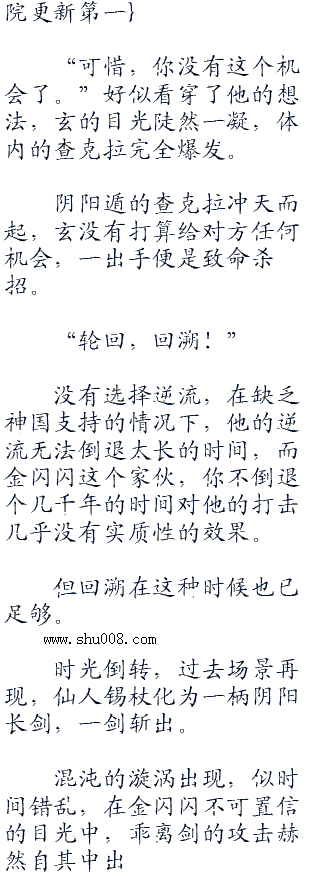 院更新第一}
“可惜，你没有这个机
会了。”好似看穿了他的想
法，玄的目光陡然一凝，体
内的查克拉完全爆发。
阴阳遁的查克拉冲天而
起，玄没有打算给对方任何
机会，一出手便是致命杀
招。
“轮回，回溯！”
没有选择逆流，在缺乏
神国支持的情况下，他的逆
流无法倒退太长的时间，而
金闪闪这个家伙，你不倒退
个几千年的时间对他的打击
几乎没有实质性的效果。
但回溯在这种时候也已
足够。
www.shu008.com
时光倒转，过去场景再
现，仙人锡杖化为一柄阴阳
长剑，一剑斩出。
混沌的漩涡出现，似时
间错乱，在金闪闪不可置信
的目光中，乖离剑的攻击赫
然自其中出